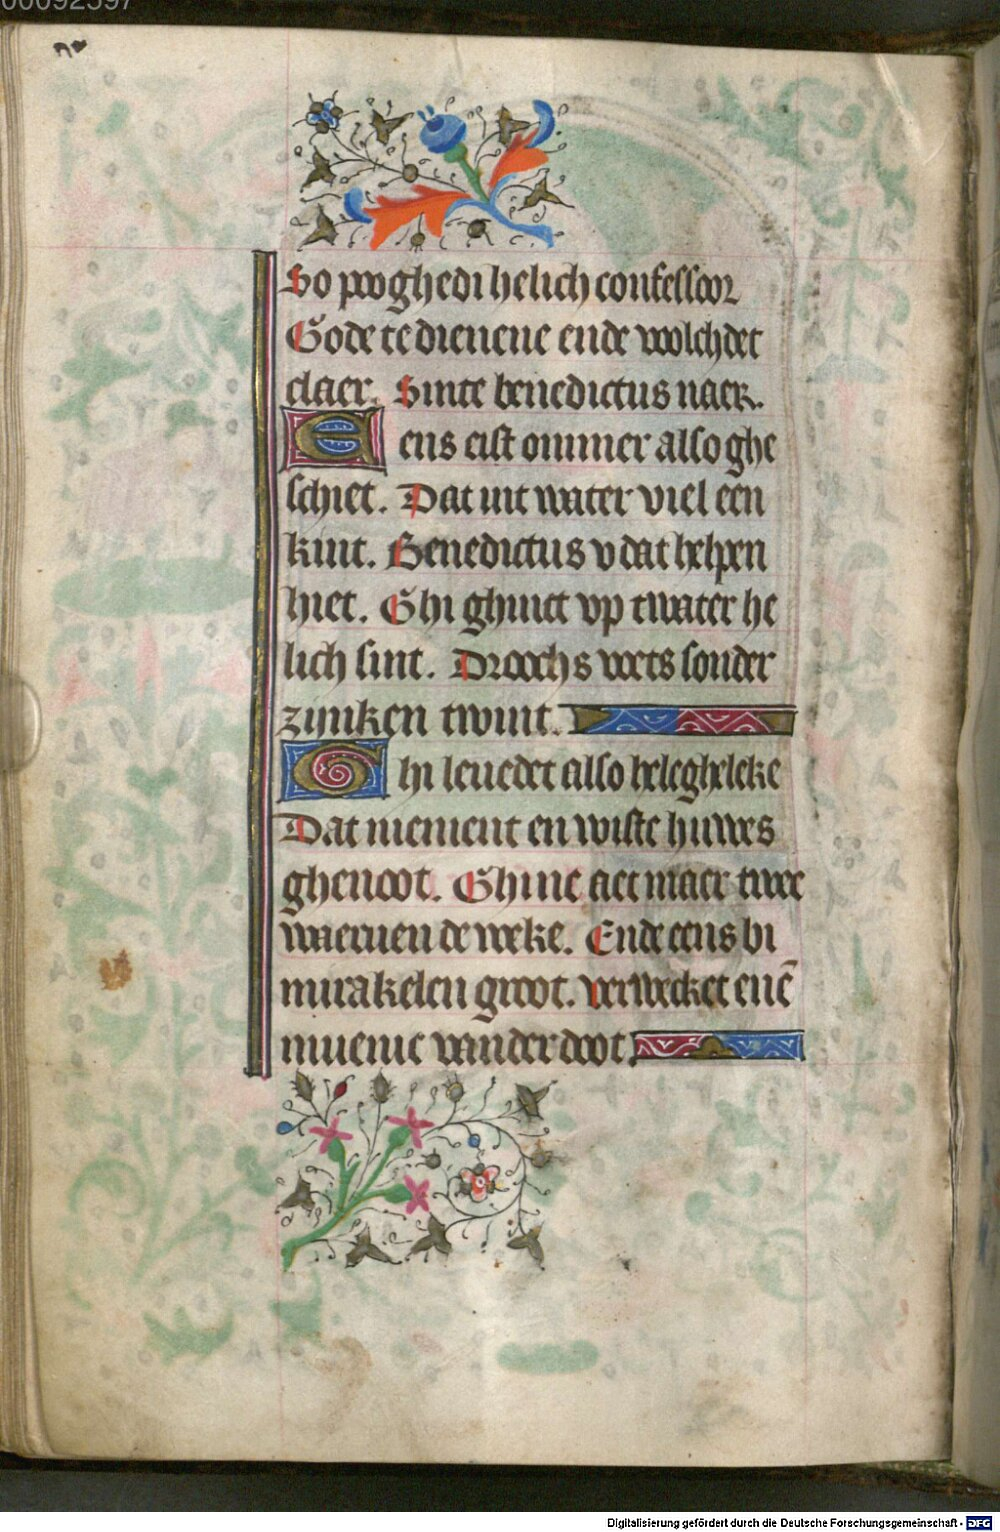 00092597
So pooghedi helich confessoor
Gode te dienene ende volchdet
claer. Sinte benedictus naer.
Eens eist ommer also ghe
schiet. Dat int water viel een
kint. Benedictus v dat helpen
hiet. Ghi ghinct vp twater he
lich sint. Droochs voets sonder
zijnken twint.
Ghi leuedet also helegheleke
Dat niement en wiste huwes
ghenoot. Ghine aet maer twee
waeruen de weke. Ende eens bi
mirakelen groot. verwecket enē
muenic vander doot.
Digitalisierung gefördert durch die Deutsche Forschungsgemeinschaft - DFG